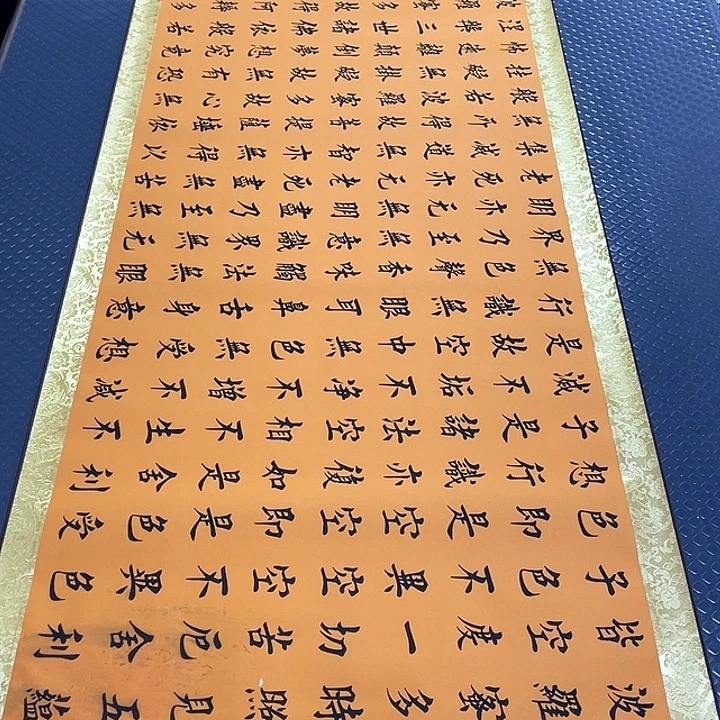 波羅蜜多時照見五蘊
皆空度一切苦厄舍利
子色不異空空不異色
色即是空空即是色受
想行識亦復如是舍利
子是諸法空相不生不
滅不垢不淨不增不減
是故空中無色無受想
行識無眼耳鼻舌身意
無色聲香味觸法無眼
界乃至無意識界無无
明亦无無明盡乃至無
老死亦无老死盡無苦
集滅道無智亦無得以
無所得故菩提薩埵依
般若波羅蜜多故心無
挂礙無掛礙故無有恐
怖遠離顛倒夢想究竟
涅槃三世諸佛依般若
波羅蜜多故得阿耨多